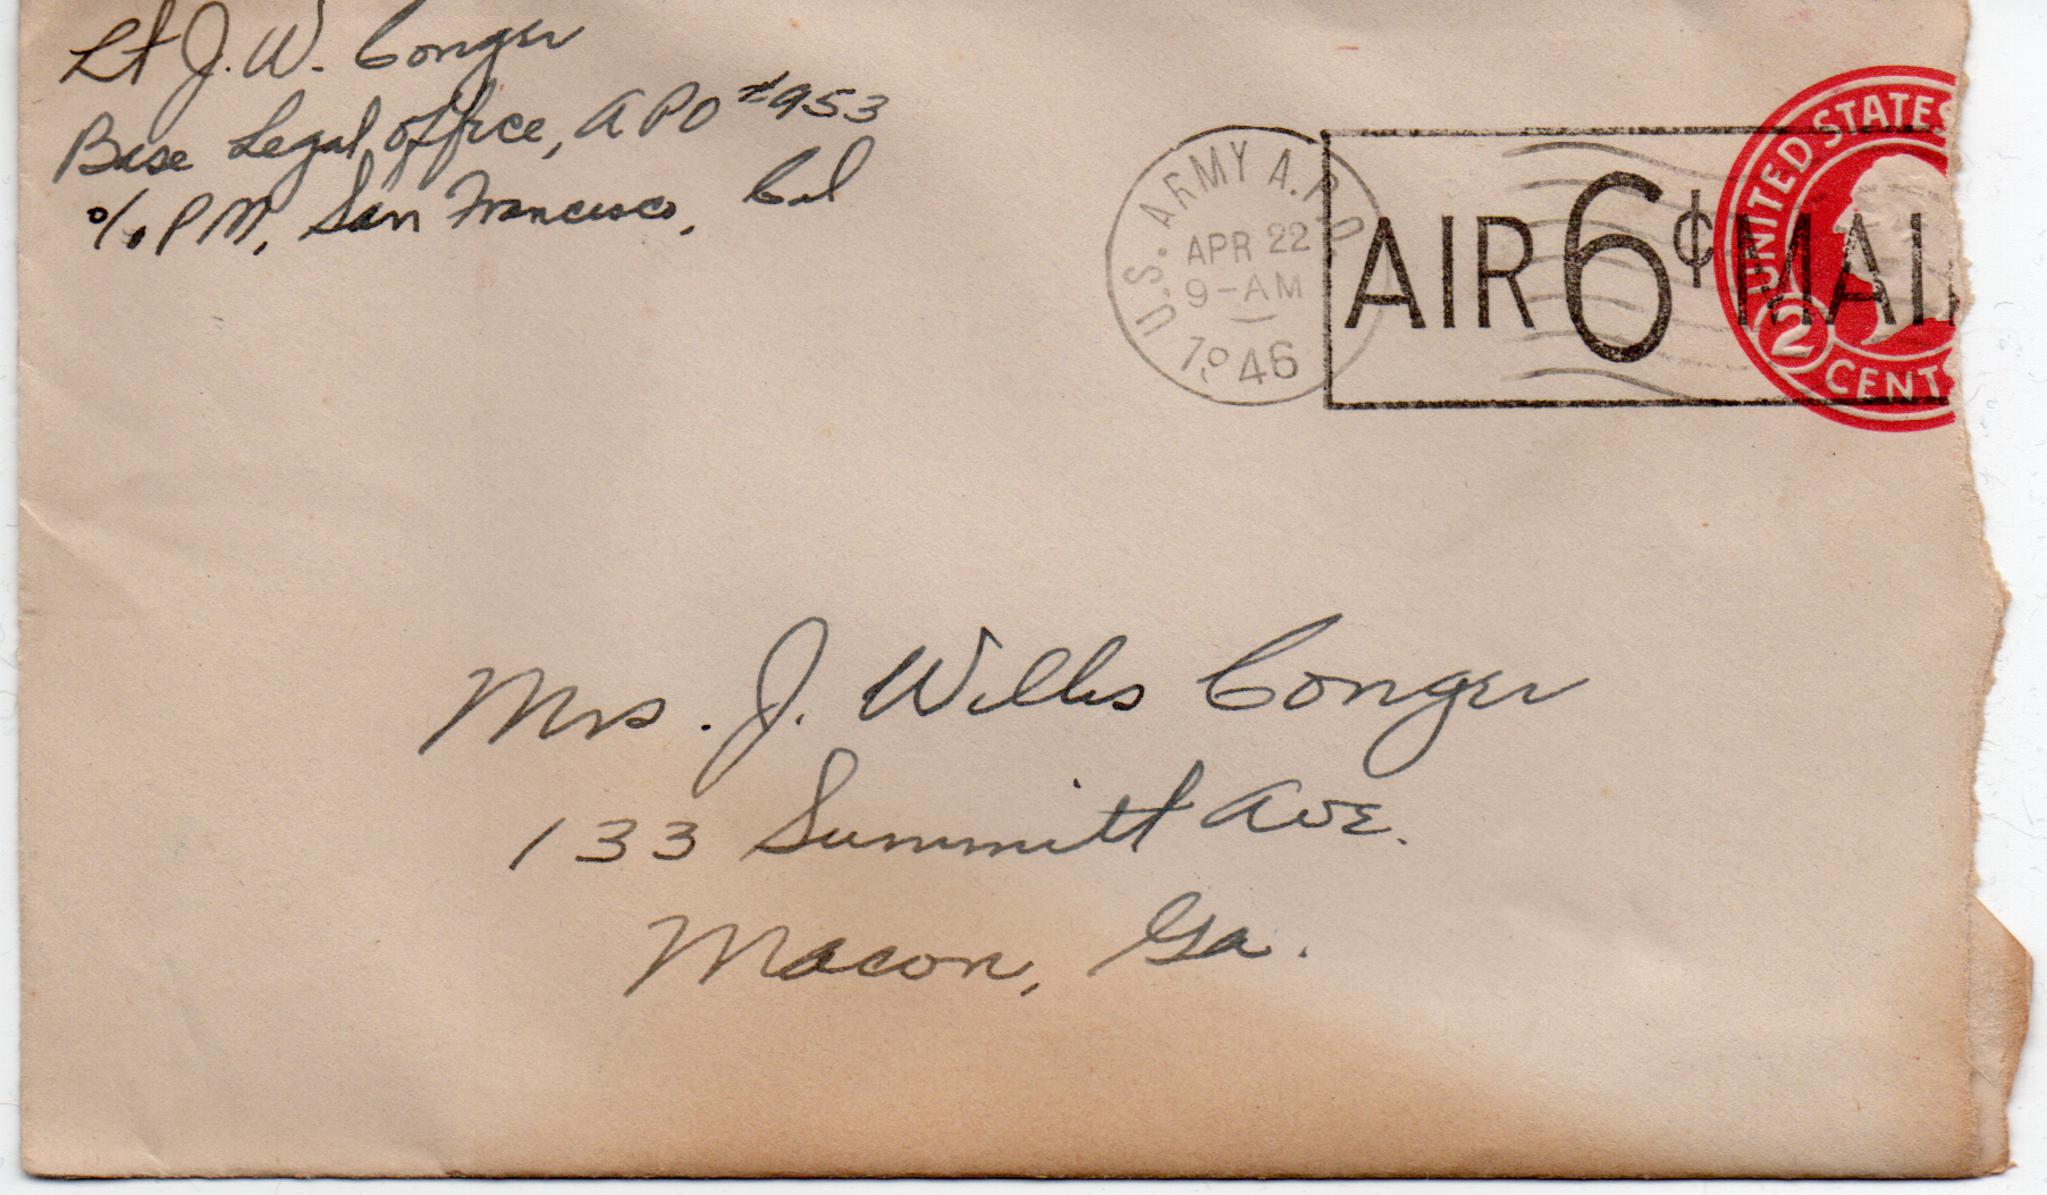 Lt J. W. Conger
Base Legal Office, APO #953
c/o PM, San Francisco, Cal
U.S. ARMY A.P.O.
APR 22
9-AM
1946
AIR 6¢ MAIL
UNITED STATES
2
CENTS
Mrs. J. Willis Conger
133 Summitt Ave.
Macon, Ga.